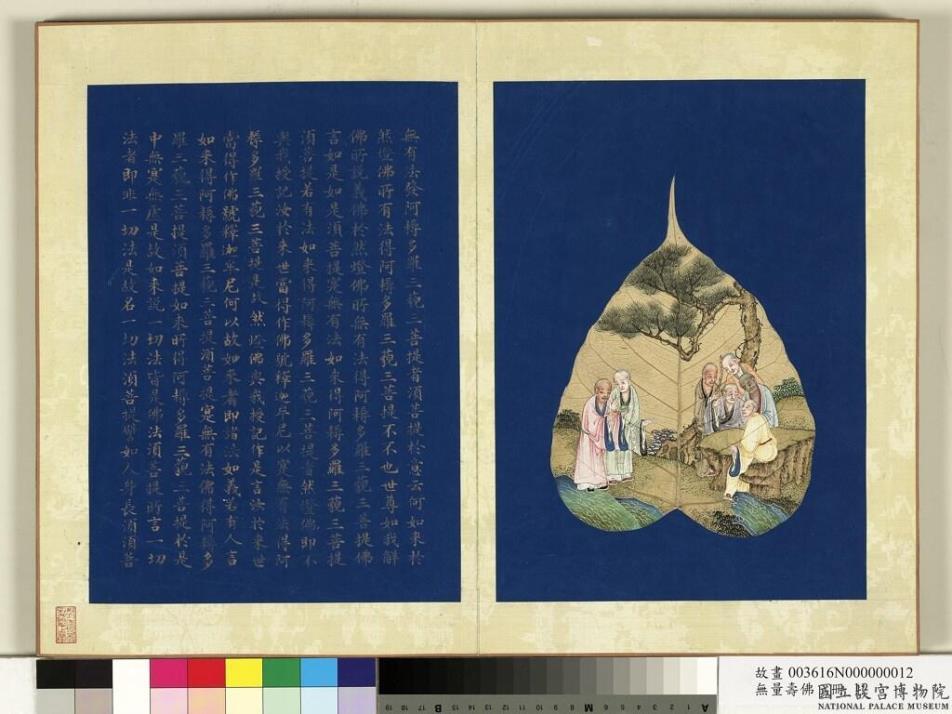 無有法發阿耨多羅三藐三菩提者須菩提於意云何如來於
然燈佛所有法得阿耨多羅三藐三菩提不不也世尊如我解
佛所說義佛於然燈佛所無有法得阿耨多羅三藐三菩提佛
言如是如是須菩提寔無有法如來得阿耨多羅三藐三菩提
須菩提若有法如來得阿耨多羅三藐三菩提者然燈佛即不
與我授記汝於來世當得作佛號釋迦牟尼以寔無有法得阿
耨多羅三藐三菩提是故然燈佛與我授記作是言汝於來世
當得作佛號釋迦牟尼何以故如來者即諸法如義若有人言
如來得阿耨多羅三藐三菩提須菩提寔無有法佛得阿耨多
羅三藐三菩提須菩提如來所得阿耨多羅三藐三菩提於是
中無寔無虛是故如來說一切法皆是佛法須菩提所言一切
法者即非一切法是故名一切法須菩提譬如人身長須菩
故畫 003616N000000012
無量壽佛 冊
國立故宮博物院
NATIONAL PALACE MUSEUM